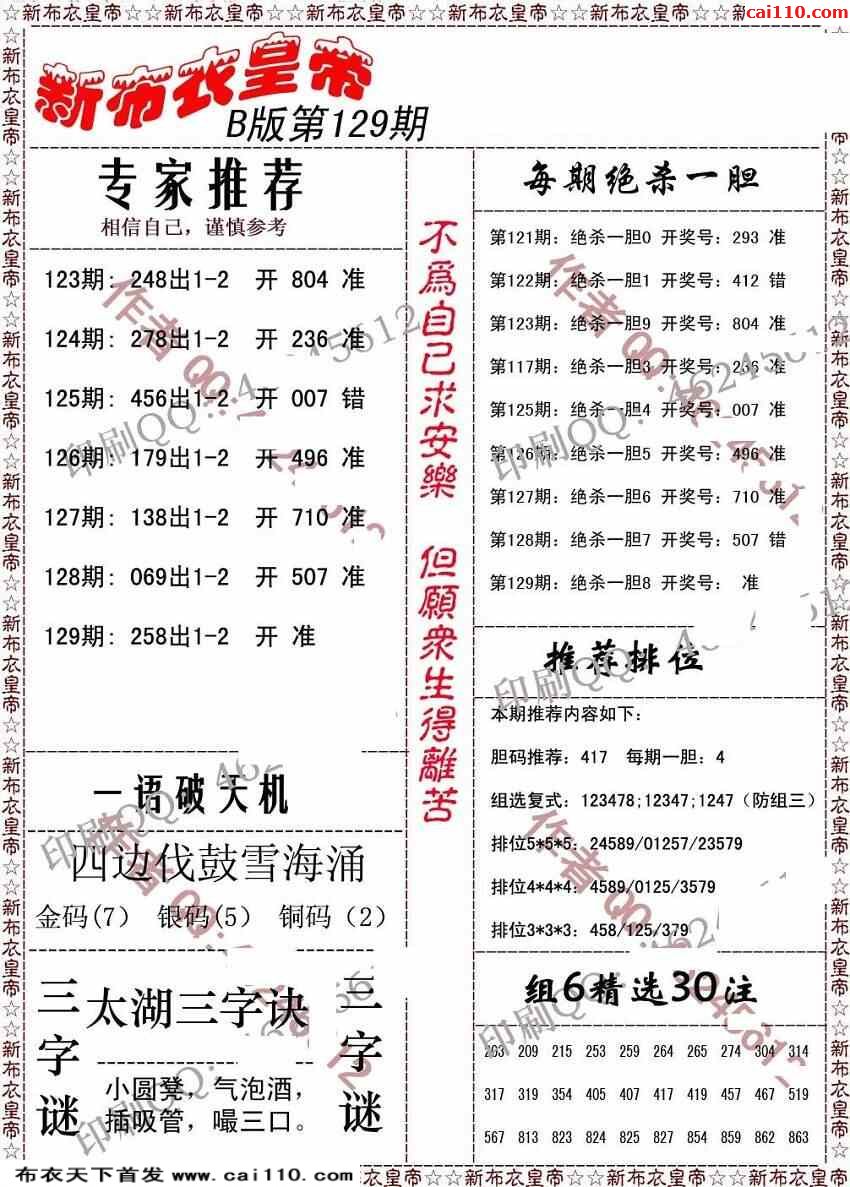 ☆新布衣皇帝☆☆新布衣皇帝☆☆新布衣皇帝☆☆新布衣皇帝☆☆新布衣皇帝☆☆新
cai110.com
新布衣皇帝
B版第129期
专家推荐
相信自己，谨慎参考
123期: 248出1-2 开 804 准
124期: 278出1-2 开 236 准
125期: 456出1-2 开 007 错
126期: 179出1-2 开 496 准
127期: 138出1-2 开 710 准
128期: 069出1-2 开 507 准
129期: 258出1-2 开 准
一语破天机
四边伐鼓雪海涌
金码(7) 银码(5) 铜码（2）
三字谜
太湖三字诀
小圆凳，气泡酒，
插吸管，嘬三口。
三字谜
不爲自己求安樂 但願衆生得離苦
每期绝杀一胆
第121期: 绝杀一胆0 开奖号: 293 准
第122期: 绝杀一胆1 开奖号: 412 错
第123期: 绝杀一胆9 开奖号: 804 准
第117期: 绝杀一胆3 开奖号: 236 准
第125期: 绝杀一胆4 开奖号: 007 准
第126期: 绝杀一胆5 开奖号: 496 准
第127期: 绝杀一胆6 开奖号: 710 准
第128期: 绝杀一胆7 开奖号: 507 错
第129期: 绝杀一胆8 开奖号: 准
推荐排位
本期推荐内容如下:
胆码推荐: 417 每期一胆: 4
组选复式: 123478;12347;1247（防组三）
排位5*5*5: 24589/01257/23579
排位4*4*4: 4589/0125/3579
排位3*3*3: 458/125/379
组6精选30注
203 209 215 253 259 264 265 274 304 314
317 319 354 405 407 417 419 457 467 519
567 813 823 824 825 827 854 859 862 863
布衣天下首发 www.cai110.com
衣皇帝☆☆新布衣皇帝☆☆新布衣皇帝☆☆新布衣皇帝☆